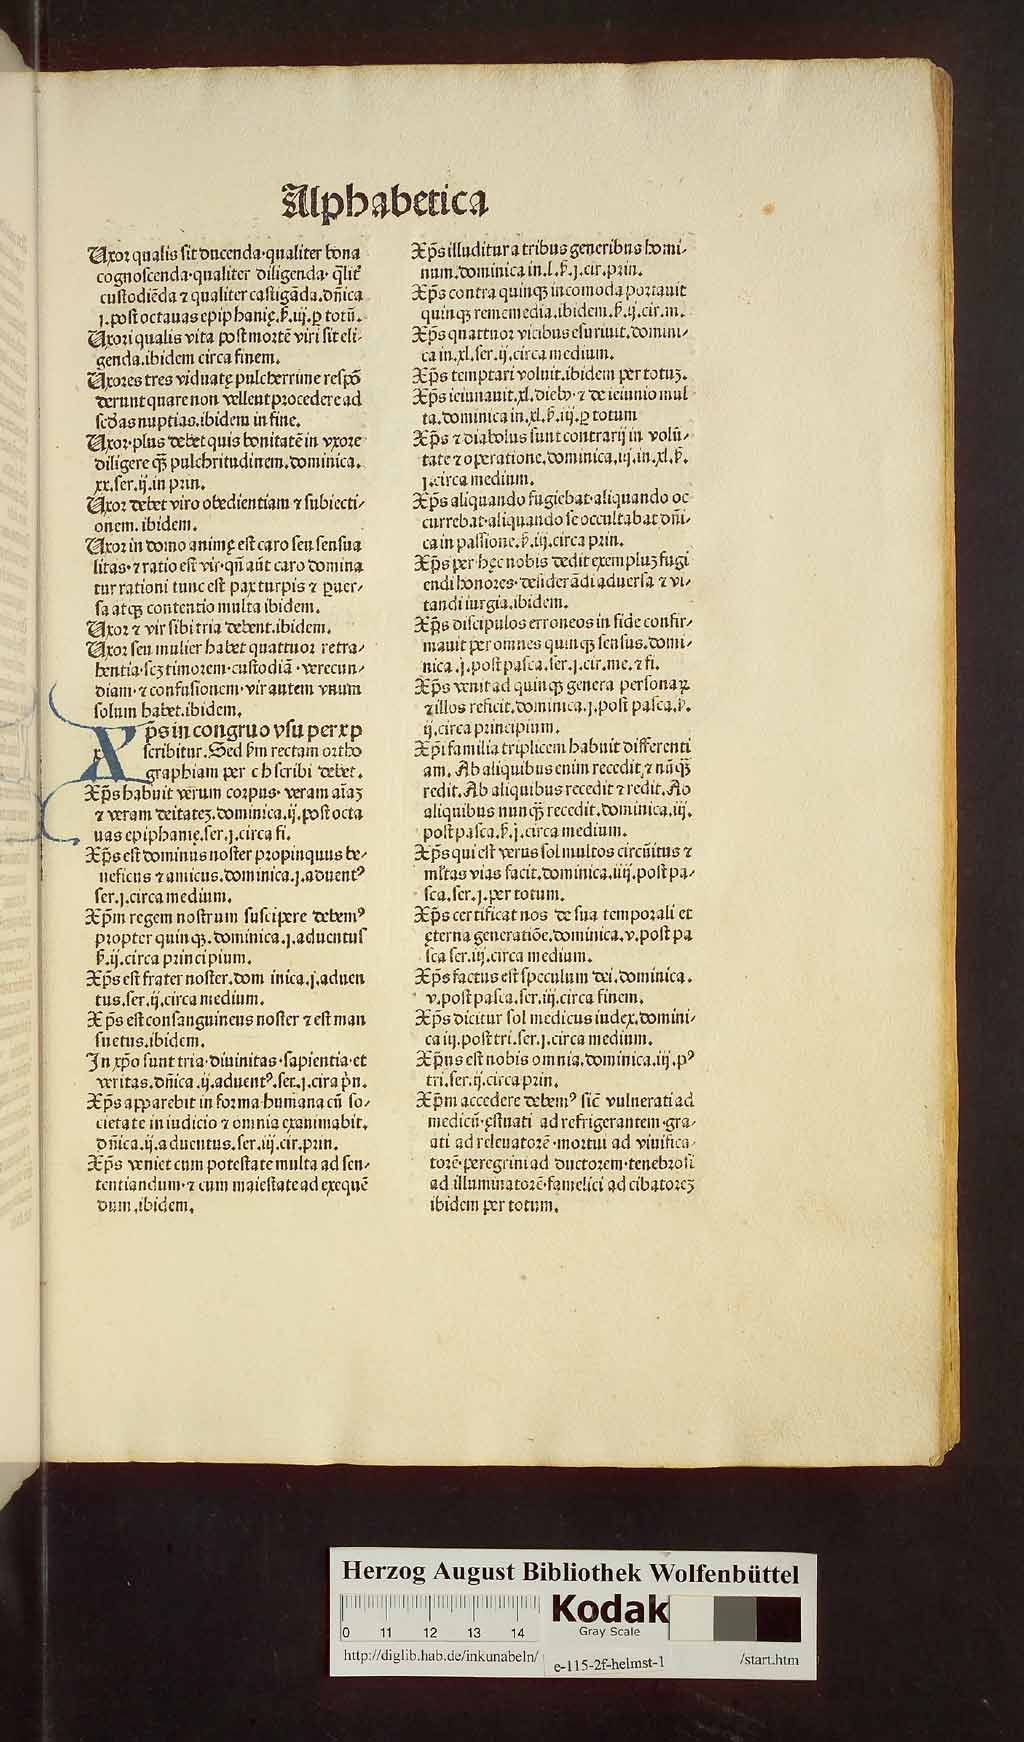 Alphabetica
Uxor qualis sit ducenda·qualiter bona
cognoscenda·qualiter diligenda· qͣlit᷑
custodiēda ⁊ qualiter castigāda.dn̄ica
j.post octauas epiphanię.ẜ.iij.ꝑ totū.
Uxori qualis vita post mortē viri sit eli-
genda.ibidem circa finem.
Uxores tres viduatę pulcherrime respō
derunt quare non vellent procedere ad
sec̄das nuptias.ibidem in fine.
Uxor·plus debet quis bonitatē in vxore
diligere qꝫ̄ pulchritudinem.dominica.
xx.ser.ij.in prin.
Uxor debet viro obedientiam ⁊ subiecti-
onem.ibidem.
Uxor in domo animę est caro seu sensua
litas·⁊ ratio est vir·qn̄ aūt caro domina
tur rationi tunc est pax turpis ⁊ ꝑuer-
sa atqꝫ contentio multa ibidem.
Uxor ⁊ vir sibi tria debent.ibidem.
Uxor seu mulier habet quattuor retra-
hentia·scꝫ timorem·custodiā·verecun-
diam·⁊ confusionem·vir autem vnum
solum habet.ibidem.
Xp̄s in congruo vsu per xp
scribitur.Sed ẜm rectam ortho
graphiam per ch scribi debet.
Xp̄s habuit verum corpus·veram aīaꝫ
⁊ veram deitateꝫ.dominica.ij.post octa
uas epiphanię.ser.j.circa fi.
Xp̄s est dominus noster propinquus be-
neficus ⁊ amicus.dominica.j.aduentꝰ
ser.j.circa medium.
Xp̄m regem nostrum suscipere debemꝰ
propter quinqꝫ.dominica.j.aduentus
ẜ.ij.circa principium.
Xp̄s est frater noster.dom inica.j.aduen
tus.ser.ij.circa medium.
Xp̄s est consanguineus noster ⁊ est man
suetus.ibidem.
In xp̄o sunt tria·diuinitas·sapientia·et
veritas.dn̄ica.ij.aduentꝰ.ser.j.cira pͥn.
Xp̄s apparebit in forma humana cū so-
cietate in iudicio ⁊ omnia examinabit.
dn̄ica.ij.aduentus.ser.iij.cir.prin.
Xp̄s veniet cum potestate multa ad sen-
tentiandum·⁊ cum maiestate ad exequē
dum.ibidem.
Xp̄s illuditur a tribus generibus homi-
num.dominica in.l.ẜ.j.cir.prin.
Xp̄s contra quinqꝫ incomoda portauit
quinqꝫ rememedia.ibidem.ẜ.ij.cir.m.
Xp̄s quattuor vicibus esuriuit.domini-
ca in.xl.ser.ij.circa medium.
Xp̄s temptari voluit.ibidem per totuꝫ.
Xp̄s ieiunauit.xl.dieb̉·⁊ de ieiunio mul
ta.dominica in.xl.ẜ.iij.ꝑ totum
Xp̄s ⁊ diabolus sunt contrarij in volū-
tate ⁊ operatione.dominica.iij.in.xl.ẜ.
j.circa medium.
Xp̄s aliquando fugiebat·aliquando oc
currebat·aliquando se occultabat dn̄i-
ca in passione.ẜ.iij.circa prin.
Xp̄s per hęc nobis dedit exempluꝫ fugi
endi honores·desiderādi aduersa ⁊ vi-
tandi iurgia.ibidem.
Xp̄s discipulos erroneos in fide confir-
mauit per omnes quinqꝫ sensus.domi-
nica.j.post pasca.ser.j.cir.me.⁊ fi.
Xp̄s venit ad quinqꝫ genera personaꝝ
⁊ illos reficit.dominica.j.post pasca.ẜ.
ij.circa principium.
Xp̄i familia triplicem habuit differenti
am.Ab aliquibus enim recedit,⁊ nūqꝫ̄
redit.Ab aliquibus recedit ⁊ redit.Ab
aliquibus nunqꝫ̄ recedit.dominica.iij.
post pasca.ẜ.j.circa medium.
Xp̄s qui est verus sol multos circūitus ⁊
ml̓tas vias facit.dominica.iiij.post pa-
sca.ser.j.per totum.
Xp̄s certificat nos de sua temporali et
ęterna generatiōe.dominica.v.post pa
sca ser.iij.circa medium.
Xp̄s factus est speculum dei.dominica.
v.post pasca.ser.iij.circa finem.
Xp̄s dicitur sol medicus iudex.domini-
ca iij.post tri.ser.j.circa medium.
Xp̄us est nobis omnia.dominica.iij.pꝰ
tri.ser.ij.circa prin.
Xp̄m accedere debemꝰ sic̄ vulnerati ad
medicū·ęstuati ad refrigerantem·gra-
ati ad releuatorē·mortui ad viuifica-
torē·peregrini ad ductorem·tenebrosi
ad illuminatorē·famelici ad cibatoreꝫ
ibidem per totum.
Herzog August Bibliothek Wolfenbüttel
0 11 12 13 14
Kodak
Gray Scale
http://diglib.hab.de/inkunabeln/ e-115-2f-helmst-1 /start.htm